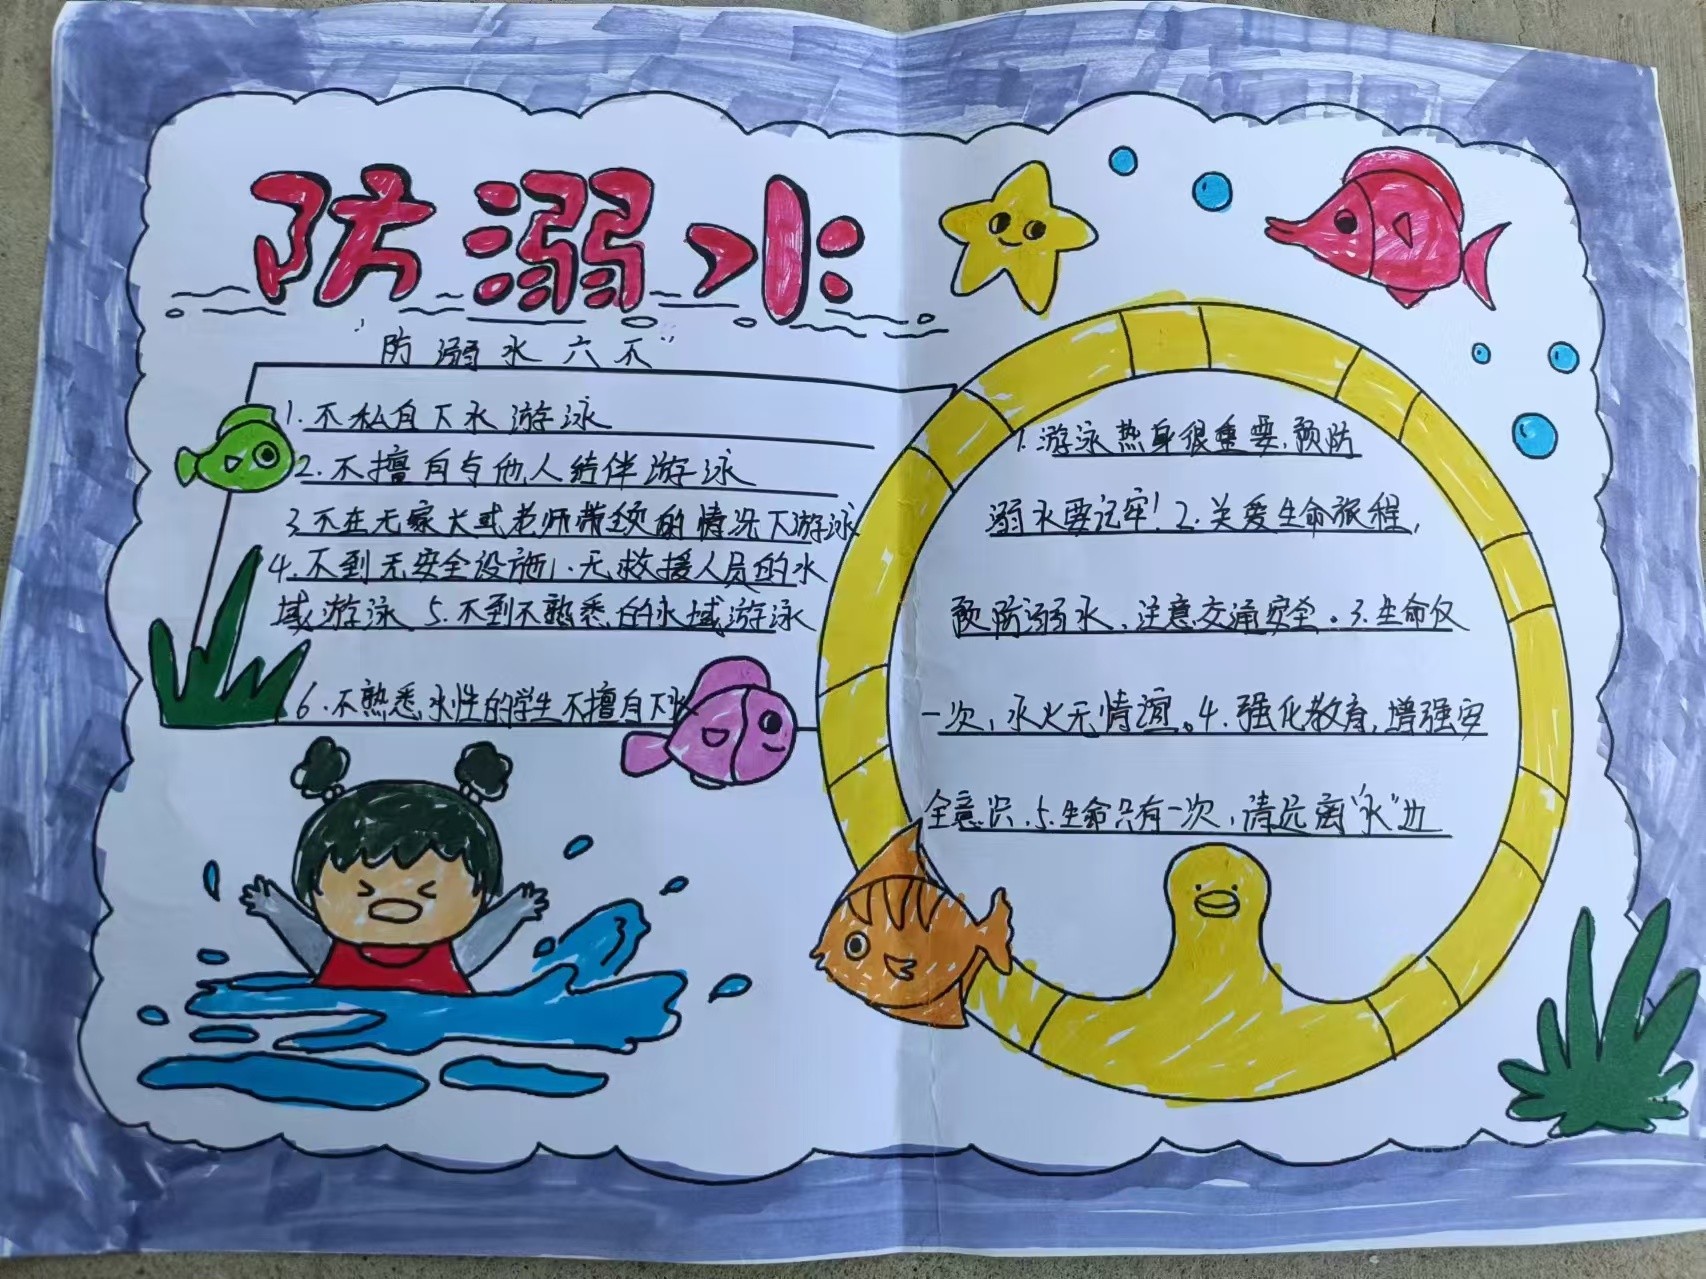 防溺水
"防溺水六不"
1.不私自下水游泳
2.不擅自与他人结伴游泳
3.不在无家长或老师带领的情况下游泳
4.不到无安全设施、无救援人员的水
域游泳 5.不到不熟悉的水域游泳
6.不熟悉水性的学生不擅自下水
1.游泳热身很重要,预防
溺水要记牢!2.关爱生命旅程,
预防溺水,注意交通安全。3.生命仅
一次,水火无情谊。4.强化教育,增强安
全意识.5.生命只有一次,请远离"水"边